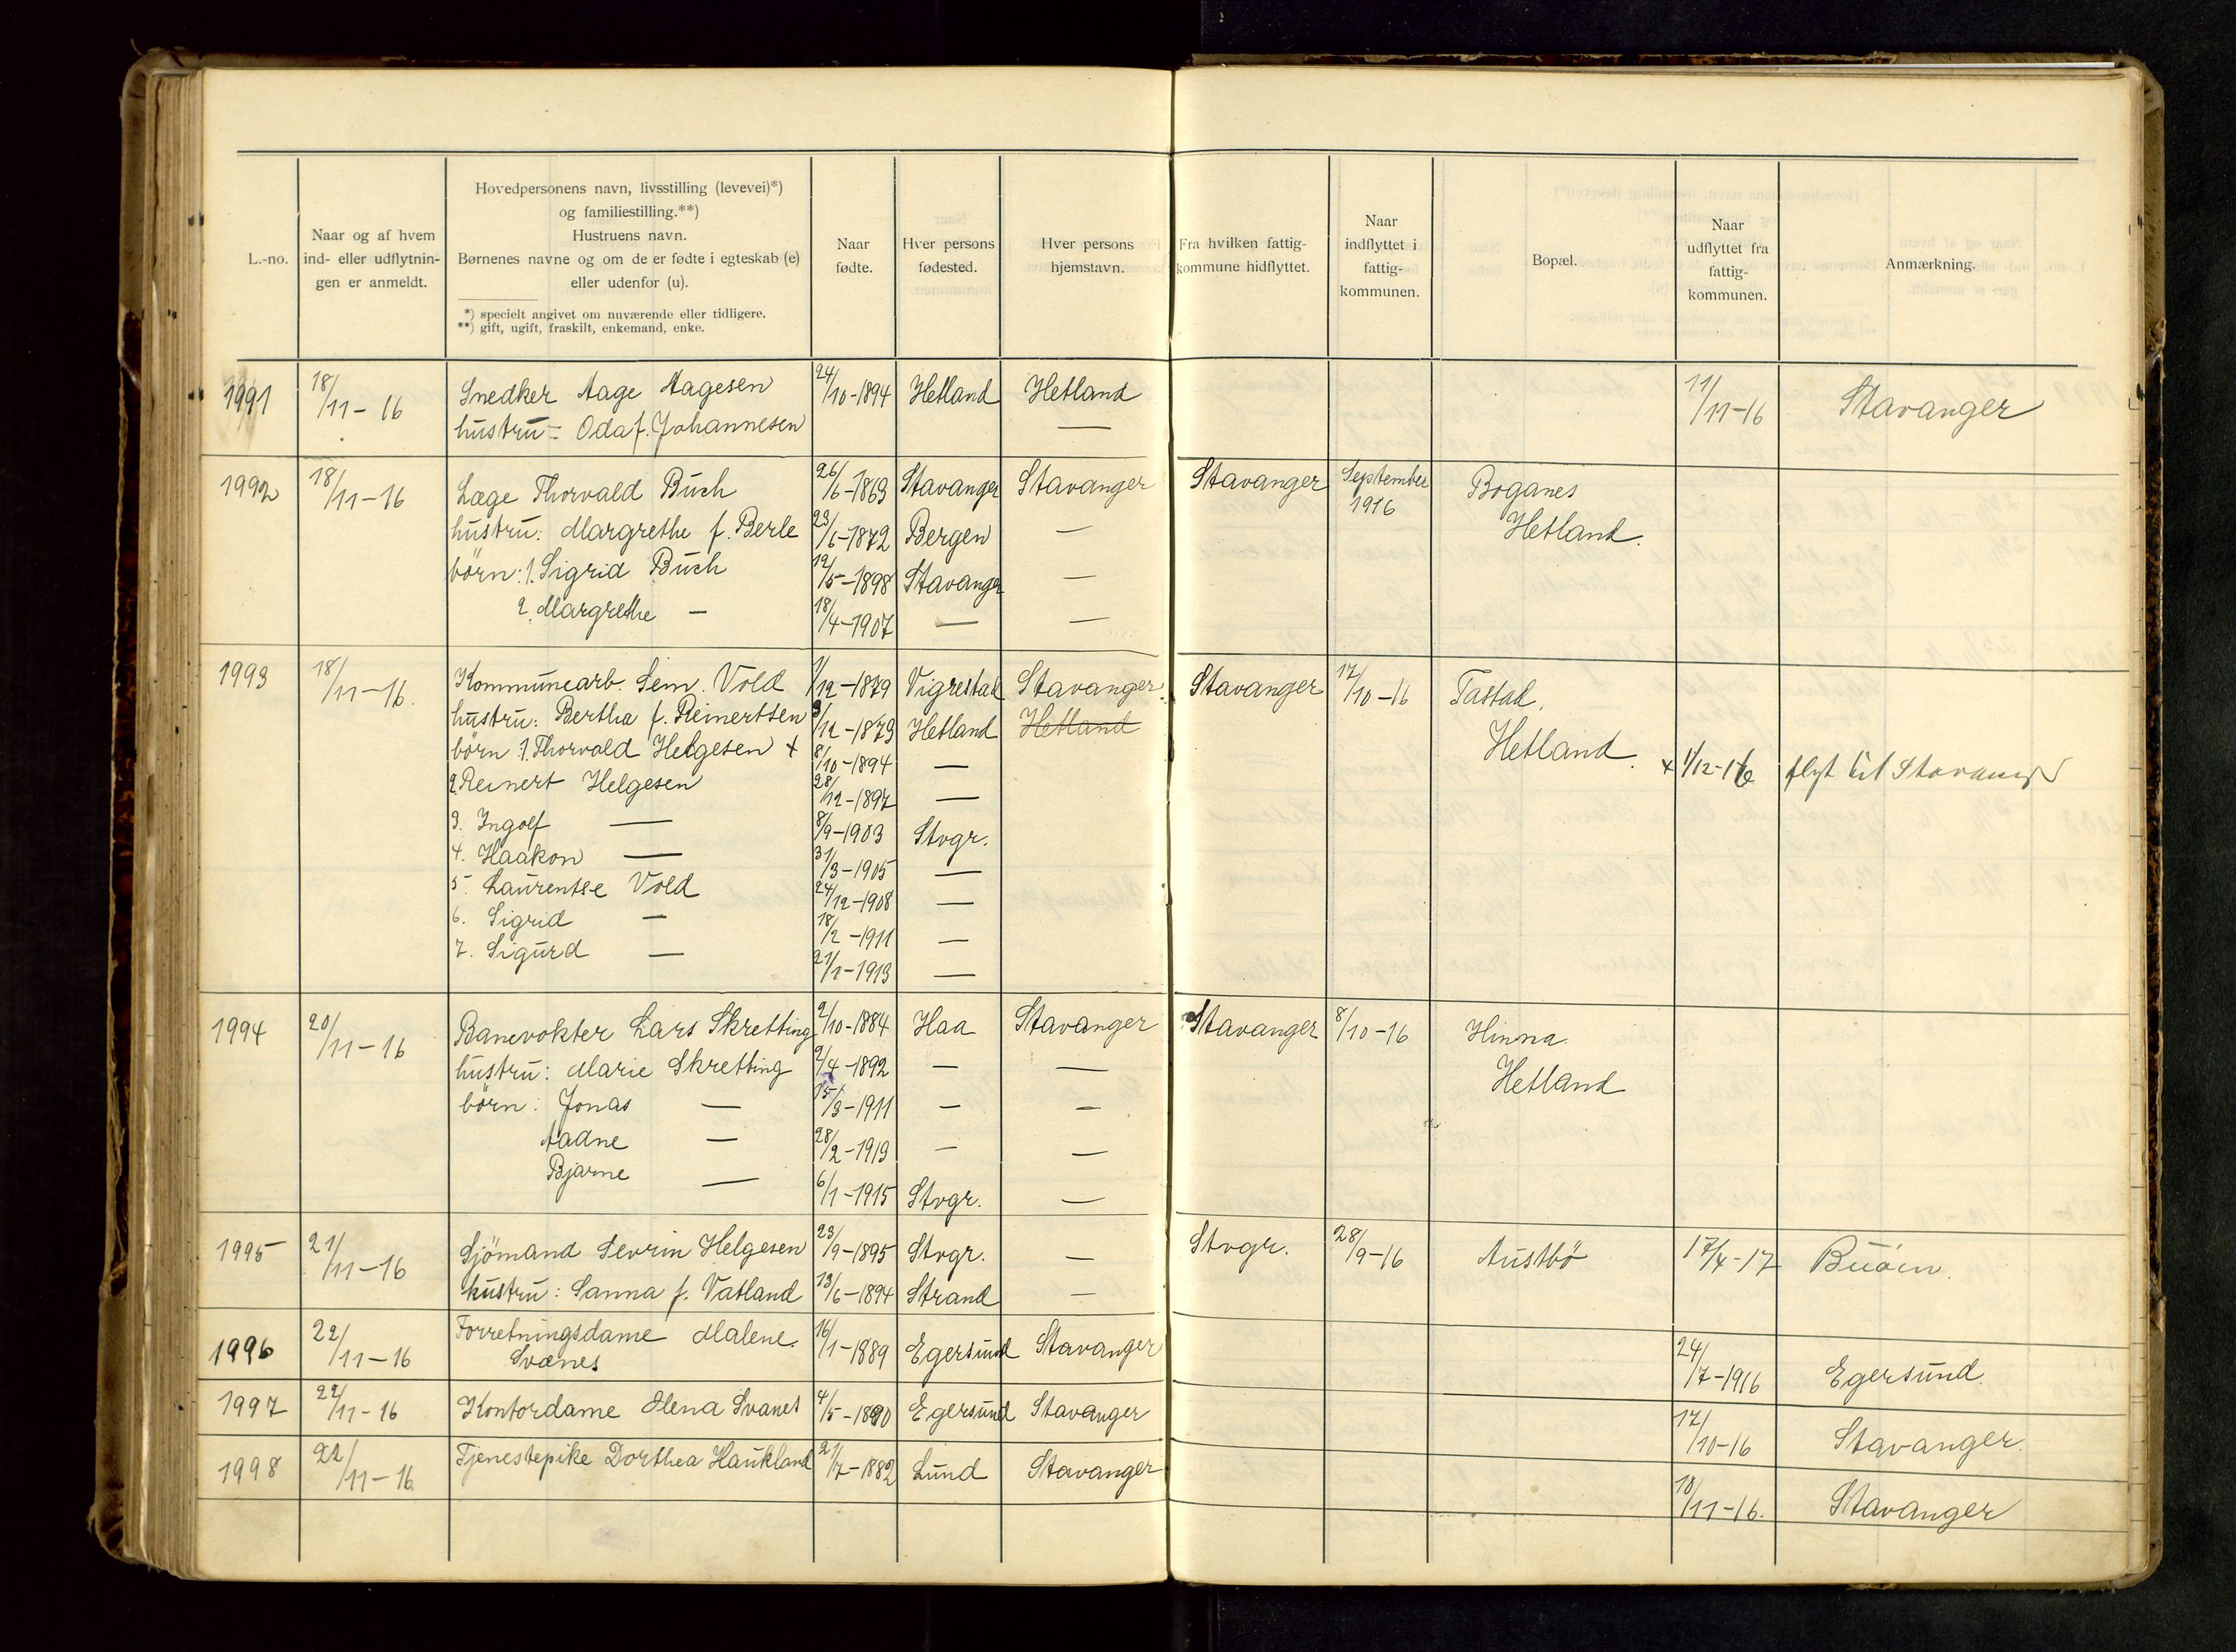 L.-no.
Naar og af hvem
ind- eller udflytnin-
gen er anmeldt.
Hovedpersonens navn, livsstilling (levevei)*)
og familiestilling.**)
Hustruens navn.
Børnenes navne og om de er fødte i egteskab (e)
eller udenfor (u).
*) specielt angivet om nuværende eller tidligere.
**) gift, ugift, fraskilt, enkemand, enke.
Naar
fødte.
Hver persons
fødested.
Hver persons
hjemstavn.
Fra hvilken fattig-
kommune hidflyttet.
Naar
indflyttet i
fattig-
kommunen.
Bopæl.
Naar
udflyttet fra
fattig-
kommunen.
Anmærkning.
1991 18/11-16 Snedker Aage Aagesen 24/10-1894 Hetland Hetland 11/11-16 Stavanger
hustru - Oda f. Johannesen —
1992 18/11-16 Læge Thorvald Buch 26/6-1869 Stavanger Stavanger Stavanger September 1916 Boganes
hustru: Margrethe f. Berle 23/6-1872 Bergen — Hetland.
börn: 1. Sigrid Buch 12/5-1898 Stavanger —
2. Margrethe — 18/4-1907 — —
1993 18/11-16. Kommunearb. Sem. Vold 1/12-1879 Vigrestad Stavanger. Stavanger 17/10-16 Tastad.
hustru: Bertha f. Reinertsen 3/12-1873 Hetland Hetland Hetland.
börn 1. Thorvald Helgesen x 8/10-1894 — x 1/12-16 flyt til Stavanger
2. Reinert Helgesen 28/12-1897 —
3. Ingolf — 8/9-1903 Stvgr.
4. Haakon — 31/3-1905 —
5. Laurentse Vold 24/12-1908 —
6. Sigrid — 18/2-1911 —
7. Sigurd — 21/1-1913 —
1994 20/11-16 Banevokter Lars Skretting 2/10-1884 Haa Stavanger Stavanger 8/10-16 Hinna.
hustru: Marie Skretting 2/4-1892 — — Hetland
börn: Jonas — 15/3-1911 — —
Aadne — 28/2-1913 — —
Bjarne — 6/1-1915 Stvgr. —
1995 21/11-16 Sjömand Sevrin Helgesen 23/9-1895 Stvgr. — Stvgr. 28/9-16 Austbö 17/4-17 Buöen.
hustru: Sanna f. Vatland 13/6-1894 Strand —
1996 22/11-16 Forretningsdame Malene. 16/1-1889 Egersund Stavanger 24/7-1916 Egersund.
Svanes
1997 22/11-16 Kontordame Olena Svanes 4/5-1890 Egersund Stavanger 17/10-16 Stavanger.
1998 22/11-16. Tjenestepike Dorthea Haukland 21/7-1882 Lund Stavanger 10/11-16. Stavanger